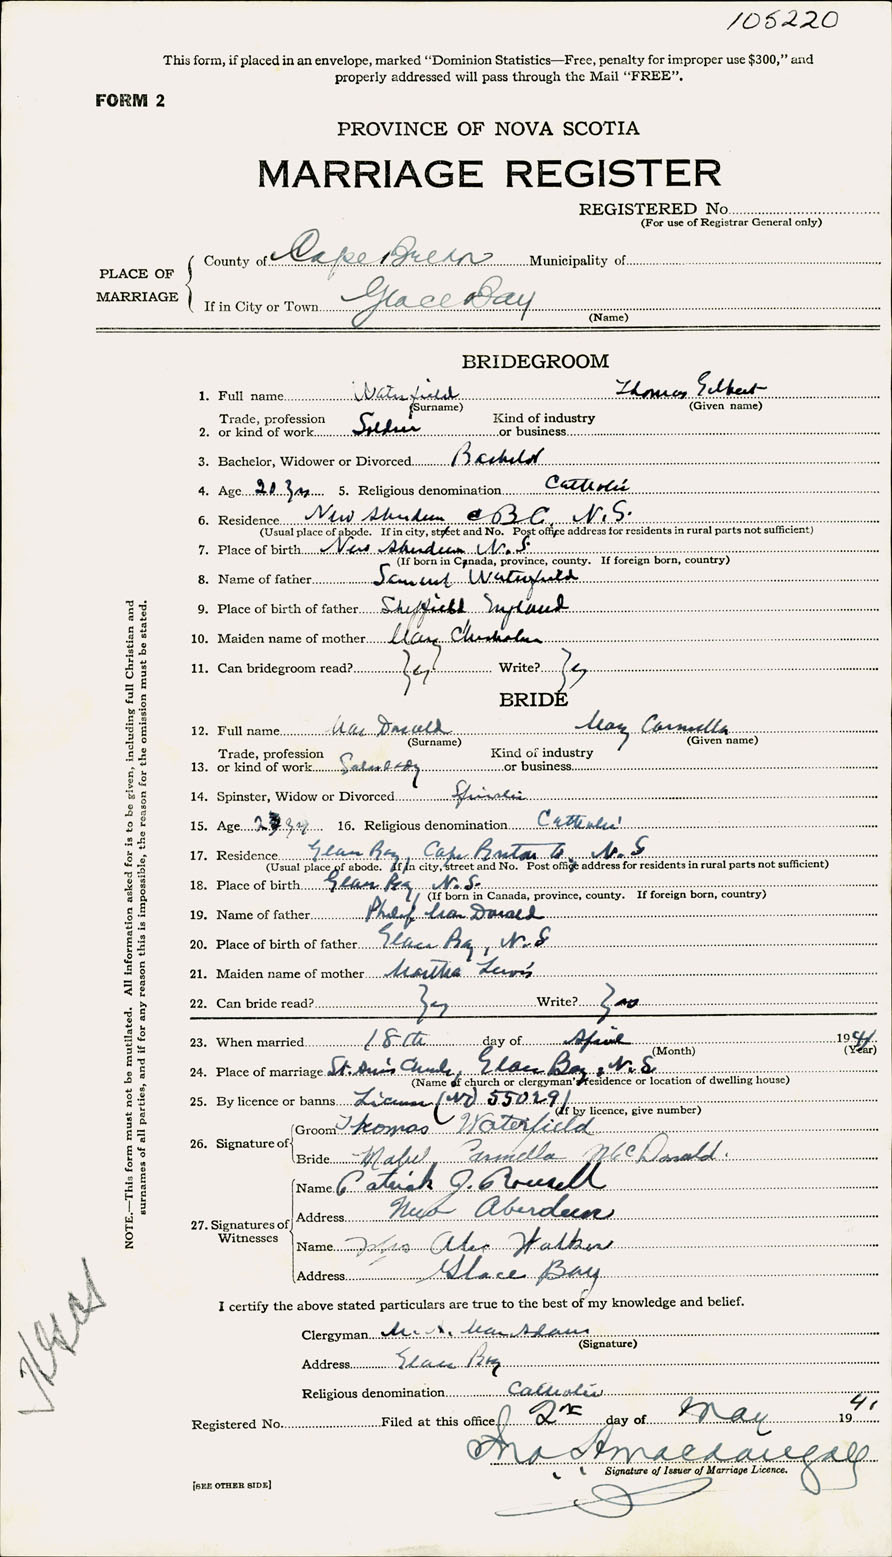 105220
This form, if placed in an envelope, marked "Dominion Statistics—Free, penalty for improper use $300," and
properly addressed will pass through the Mail "FREE".
FORM 2
PROVINCE OF NOVA SCOTIA
MARRIAGE REGISTER
REGISTERED No.
(For use of Registrar General only)
PLACE OF MARRIAGE
County of Cape Breton Municipality of
If in City or Town Glace Bay
(Name)
BRIDEGROOM
1. Full name Waterfield Thomas Gilbert
(Surname) (Given name)
Trade, profession Kind of industry
2. or kind of work Soldier or business
3. Bachelor, Widower or Divorced Bachelor
4. Age 20 yrs 5. Religious denomination Catholic
6. Residence New Aberdeen C.B. C. N.S.
(Usual place of abode. If in city, street and No. Post office address for residents in rural parts not sufficient)
7. Place of birth New Aberdeen N.S
(If born in Canada, province, county. If foreign born, country)
8. Name of father Samuel Waterfield
9. Place of birth of father Sheffield England
10. Maiden name of mother Mary Chisholm
11. Can bridegroom read? Yes Write? Yes
BRIDE
12. Full name MacDonald Mary Carmella
(Surname) (Given name)
Trade, profession Kind of industry
13. or kind of work Saleslady or business
14. Spinster, Widow or Divorced Spinster
15. Age 16. Religious denomination Catholic
17. Residence Glace Bay, Cape Breton Co, N.S
(Usual place of abode. If in city, street and No. Post office address for residents in rural parts not sufficient)
18. Place of birth Glace Bay, N.S.
(If born in Canada, province, county. If foreign born, country)
19. Name of father Philip MacDonald
20. Place of birth of father Glace Bay, N.S
21. Maiden name of mother Martha Lewis
22. Can bride read? Yes Write? Yes
23. When married 18th day of April 1941
(Month) (Year)
24. Place of marriage St. Ann's Church, Glace Bay, N.S.
(Name of church or clergyman's residence or location of dwelling house)
25. By licence or banns License (No) 55029
(If by licence, give number)
26. Signature of
Groom Thomas Waterfield
Bride Mabel Carmella McDonald.
27. Signatures of Witnesses
Name Patrick J. Rousell
Address New Aberdeen
Name Mrs Alex Walker
Address Glace Bay
I certify the above stated particulars are true to the best of my knowledge and belief.
Clergyman M. A. MacAdam
(Signature)
Address Glace Bay
Religious denomination Catholic
Registered No. Filed at this office 2nd day of May 1941
Signature of Issuer of Marriage Licence.
[SEE OTHER SIDE]
NOTE.—This form must not be mutilated. All information asked for is to be given, including full Christian and
surnames of all parties, and if for any reason this is impossible, the reason for the omission must be stated.